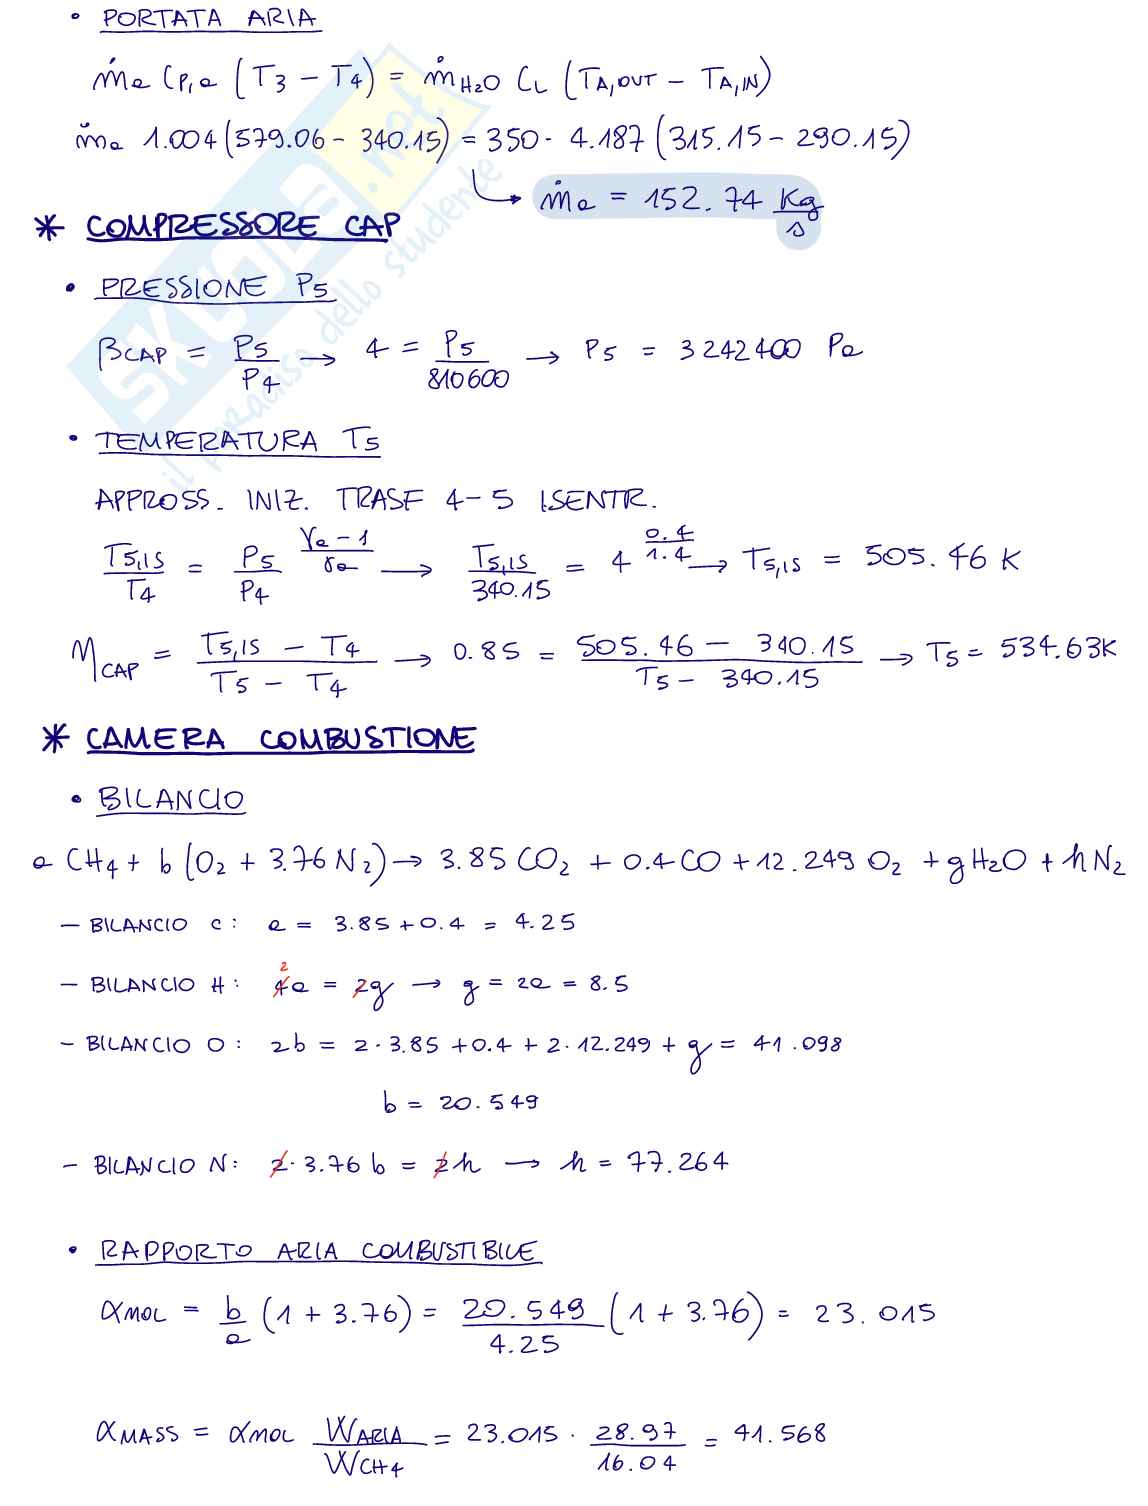 • PORTATA ARIA
ṁa Cp,a (T3 − T4) = ṁH2O CL (TA,OUT − TA,IN)
ṁa 1.004 (579.06 − 340.15) = 350 · 4.187 (315.15 − 290.15)
→ ṁa = 152.74 Kg/s
* COMPRESSORE CAP
• PRESSIONE P5
βCAP = P5/P4 → 4 = P5/810600 → P5 = 3242400 Pa
• TEMPERATURA T5
APPROSS. INIZ. TRASF 4-5 ISENTR.
T5,IS/T4 = P5/P4 ^ (γa−1)/γa → T5,IS/340.15 = 4 ^ 0.4/1.4 → T5,IS = 505.46 K
ηCAP = (T5,IS − T4)/(T5 − T4) → 0.85 = (505.46 − 340.15)/(T5 − 340.15) → T5 = 534.63K
* CAMERA COMBUSTIONE
• BILANCIO
a CH4 + b (O2 + 3.76 N2) → 3.85 CO2 + 0.4 CO + 12.249 O2 + g H2O + h N2
− BILANCIO C: a = 3.85 + 0.4 = 4.25
− BILANCIO H: 2 4a = 2g → g = 2a = 8.5
− BILANCIO O: 2b = 2 · 3.85 + 0.4 + 2 · 12.249 + g = 41.098
b = 20.549
− BILANCIO N: 2 · 3.76 b = 2h → h = 77.264
• RAPPORTO ARIA COMBUSTIBILE
αMOL = b/a (1 + 3.76) = 20.549/4.25 (1 + 3.76) = 23.015
αMASS = αMOL WARIA/WCH4 = 23.015 · 28.97/16.04 = 41.568
SKUOLA.net
il paradiso dello studente